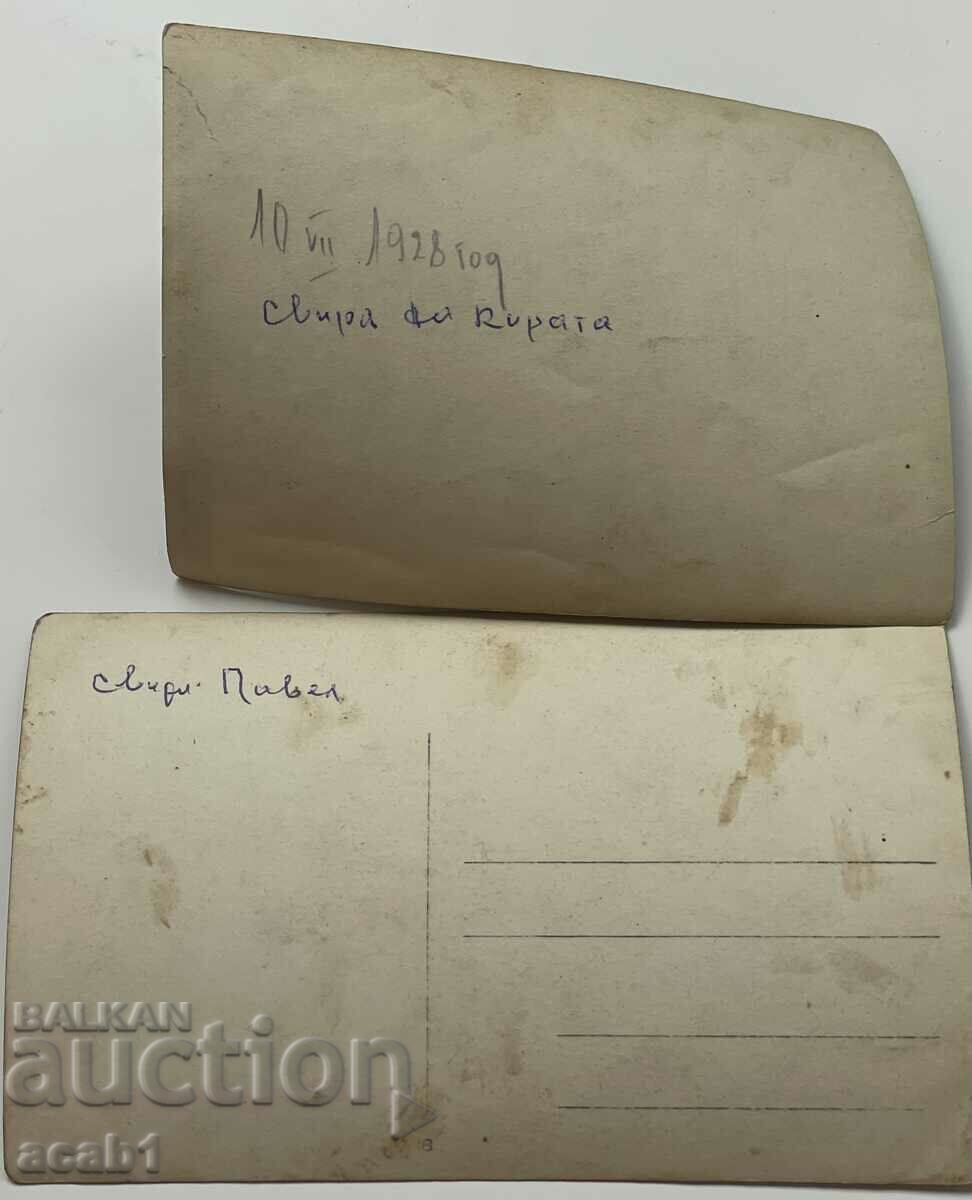 10 VII 1928 год
свира на кората
свири Павел
BALKAN
auction
acab1
6